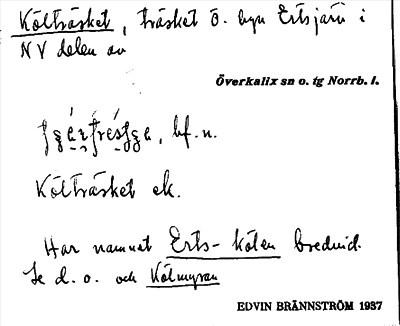 Költräsket, träsket Ö. byn Ertsjärv i
NV delen av
Överkalix sn o. tg Norrb. l.
bf. n.
Költräsket ek.
Har namnet Erts-kölen bredvid.
Se d. o. och Kölmyran
EDVIN BRÄNNSTRÖM 1937